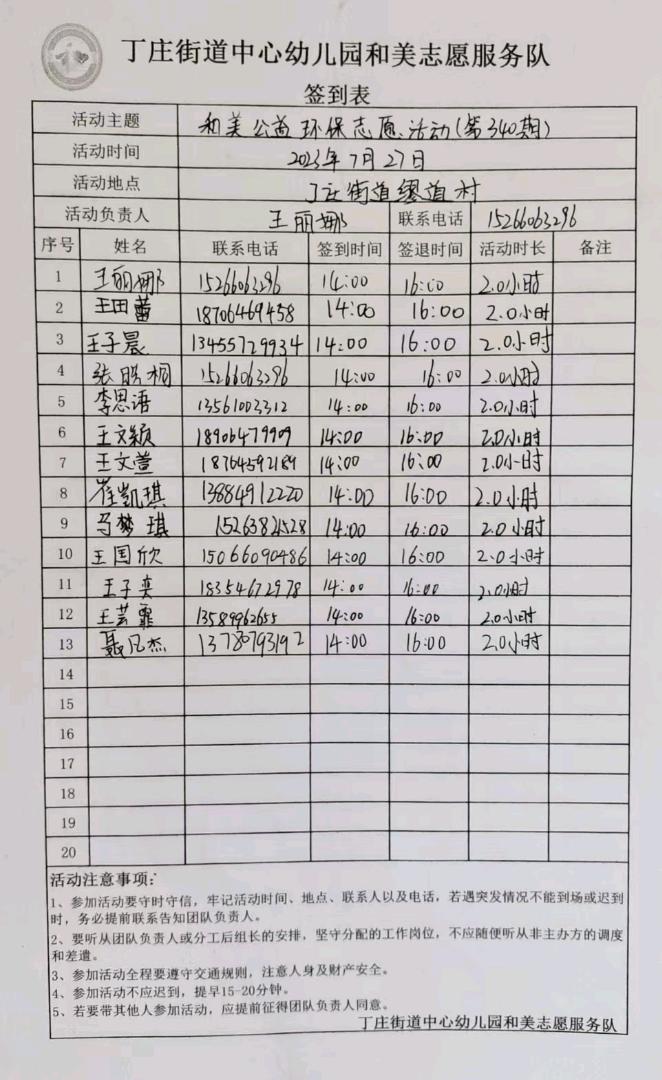 丁庄街道中心幼儿园和美志愿服务队
签到表
活动主题 和美公益环保志愿活动(第340期)
活动时间 2023年7月27日
活动地点 丁庄街道缪道村
活动负责人 王丽娜 联系电话 15266063296
序号 姓名 联系电话 签到时间 签退时间 活动时长 备注
1 王丽娜 15266063296 14:00 16:00 2.0小时
2 王田蕾 18706469458 14:00 16:00 2.0小时
3 王子晨 13455729934 14:00 16:00 2.0小时
4 张皓桐 15266063296 14:00 16:00 2.0小时
5 李思语 13561003312 14:00 16:00 2.0小时
6 王文颖 18906479909 14:00 16:00 2.0小时
7 王文萱 18764592189 14:00 16:00 2.0小时
8 崔凯琪 13884912220 14:00 16:00 2.0小时
9 马梦琪 15263821528 14:00 16:00 2.0小时
10 王国欣 15066090486 14:00 16:00 2.0小时
11 王子奕 18354672978 14:00 16:00 2.0小时
12 王芸霏 13589962655 14:00 16:00 2.0小时
13 聂凡杰 14:00 16:00 2.0小时
14
15
16
17
18
19
20
活动注意事项:
1、参加活动要守时守信，牢记活动时间、地点、联系人以及电话，若遇突发情况不能到场或迟到
时，务必提前联系告知团队负责人。
2、要听从团队负责人或分工后组长的安排，坚守分配的工作岗位，不应随便听从非主办方的调度
和差遣。
3、参加活动全程要遵守交通规则，注意人身及财产安全。
4、参加活动不应迟到，提早15-20分钟。
5、若要带其他人参加活动，应提前征得团队负责人同意。
丁庄街道中心幼儿园和美志愿服务队